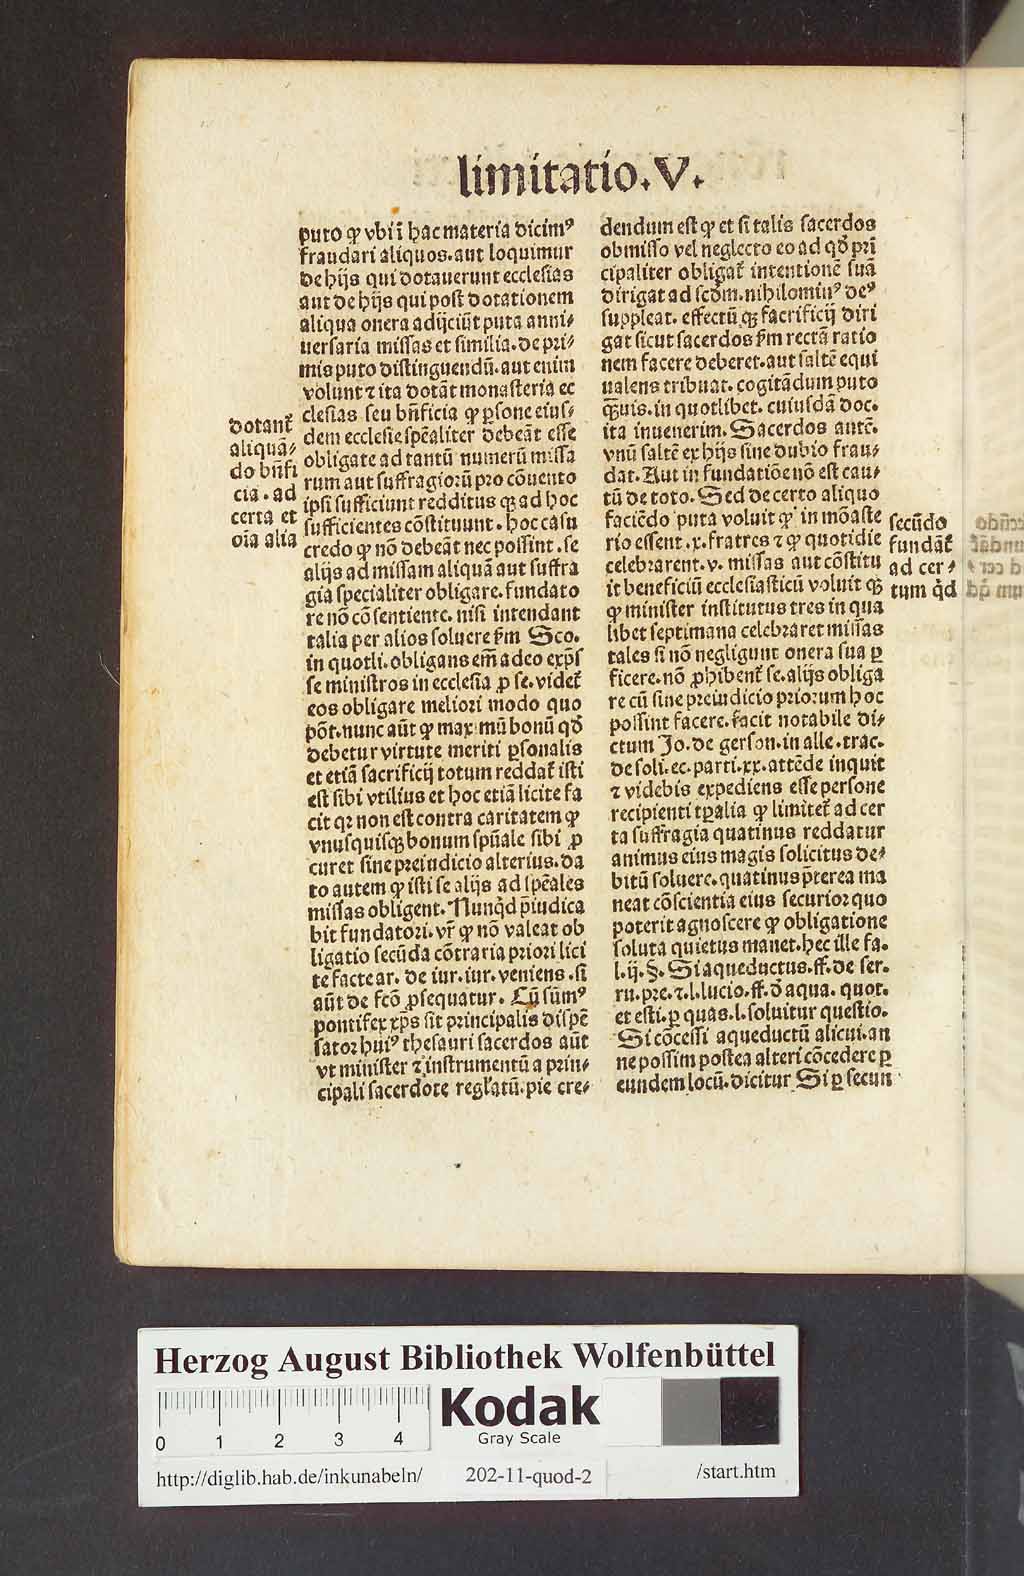 limitatio.V.
puto ꝙ vbi ī hac materia dicimꝰ
fraudari aliquos.aut loquimur
de hijs qui dotauerunt ecclesias
aut de hijs qui post dotationem
aliqua onera adijciūt puta anni⸗
uersaria missas et similia.de pri⸗
mis puto distinguendū.aut enim
volunt ⁊ ita dotāt monasteria ec
clesias seu bñficia ꝙ ꝑsone eius⸗
dem ecclesie spēaliter debeāt esse
obligate ad tantū numerū missa
rum aut suffragiorū pro cōuento
ipsi sufficiunt redditus qꝫ ad hoc
sufficientes cōstituunt.hoc casu
credo ꝙ nō debeāt nec possint.se
alijs ad missam aliquā aut suffra
gia specialiter obligare.fundato
re nō cōsentiente.nisi intendant
talia per alios soluere ẜm Sco.
in quotli.obligans em̄ adeo exp̄s
se ministros in ecclesia ꝓ se.videt᷑
eos obligare meliori modo quo
pōt.nunc aūt ꝙ maximū bonū qđ
debetur virtute meriti ꝑsonalis
et etiā sacrificij totum reddat᷑ isti
est sibi vtilius et hoc etiā licite fa
cit qꝛ non est contra caritatem ꝙ
vnusquisqꝫ bonum spūale sibi ꝓ
curet sine preiudicio alterius.da
to autem ꝙ isti se alijs ad spēales
missas obligent.Nunqd̄ p̄iudica
bit fundatori.vr̄ ꝙ nō valeat ob
ligatio secūda cōtraria priori lici
te facte ar. de iur.iur.veniens.si
aūt de fcō ꝓsequatur. Cū sūmꝰ
pontifex xp̄s sit principalis dispē
sator huiꝰ thesauri sacerdos aūt
vt minister ⁊ instrumentū a prin⸗
cipali sacerdote regl'atū.pie cre⸗
dotant᷑
aliquā⸗
do bñfi
cia.ad
certa et
oīa alia
dendum est ꝙ et si talis sacerdos
obmisso vel neglecto eo ad qđ pri
cipaliter obligat᷑ intentionē suā
dirigat ad scđm.nihilominꝰ deꝰ
suppleat. effectū qꝫ sacrificij diri
gat sicut sacerdos ẜm rectā ratio
nem facere deberet.aut saltē equi
ualens tribuat. cogitādum puto
qꝫuis.in quotlibet. cuiusdā doc.
ita inuenerim. Sacerdos autē.
vnū saltē ex hijs sine dubio frau⸗
dat. Aut in fundatiōe nō est cau⸗
tū de toto. Sed de certo aliquo
faciēdo puta voluit ꝙ in mōaste
rio essent.x.fratres ⁊ ꝙ quotidie
celebrarent.v. missas aut cōstitu
it beneficiū ecclesiasticū voluit qꝫ
ꝙ minister institutus tres in qua
libet septimana celebraret missas
tales si nō negligunt onera sua ꝑ
ficere.nō ꝓhibent᷑ se.alijs obliga
re cū sine preiudicio priorum hoc
possint facere.facit notabile di⸗
ctum Jo.de gerson.in alle.trac.
de soli.ec.parti.xx.attēde inquit
⁊ videbis expediens esse persone
recipienti tꝑalia ꝙ limitet᷑ ad cer
ta suffragia quatinus reddatur
animus eius magis solicitus de⸗
bitū soluere.quatinus p̄terea ma
neat cōscientia eius securior quo
poterit agnoscere ꝙ obligatione
soluta quietus manet.hec ille fa.
l.ij.§. Si aqueductus.ff.de ser.
ru.pre.⁊.l.lucio.ff.đ aqua. quot.
et esti.ꝑ quas.l.soluitur questio.
Si cōcessi aqueductū alicui.an
ne possim postea alteri cōcedere ꝑ
eundem locū.dicitur Si ꝑ secun
secūdo
fundāt᷑
ad cer⸗
tum qd̄
Herzog August Bibliothek Wolfenbüttel
0 1 2 3 4
Kodak
Gray Scale
http://diglib.hab.de/inkunabeln/ 202-11-quod-2 /start.htm